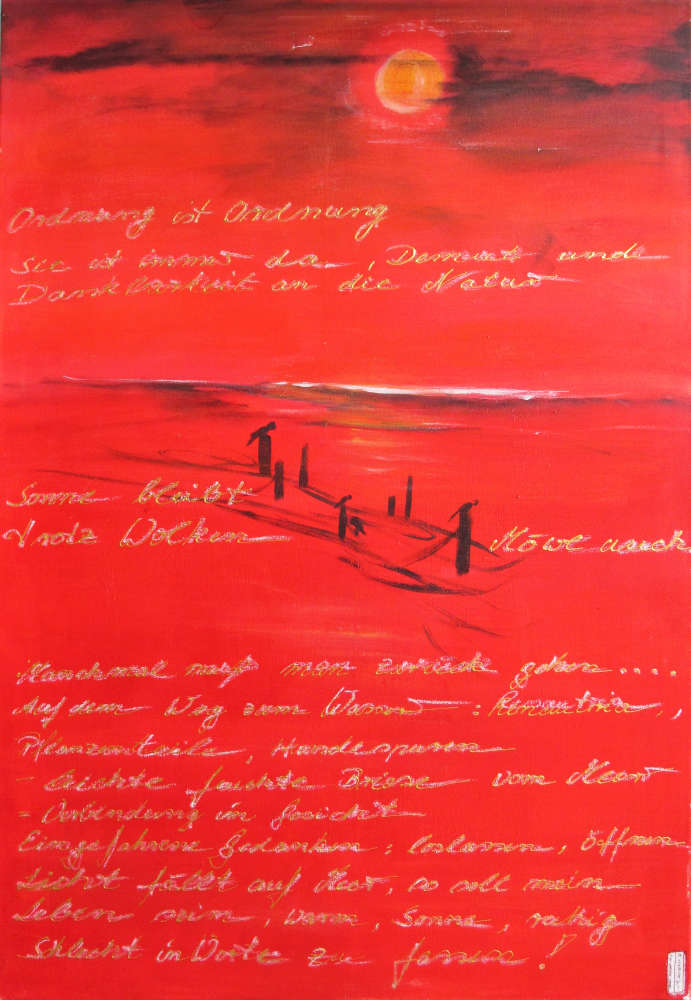 Ordnung ist Ordnung
Sie ist immer da, Demut und
Dankbarkeit an die Natur
Sonne bleibt
trotz Wolken
Möwe auch
Manchmal muß man zurück gehen....
Auf dem Weg zum Wasser:
Pflanzenteile, Hundespuren
- leichte feuchte Briese vom Meer
- Verbindung im Gesicht
Eingefahrene Gedanken: loslassen, öffnen
Licht fällt auf Meer, so soll mein
Leben sein, warm, Sonne,
Schlecht in Worte zu fassen!